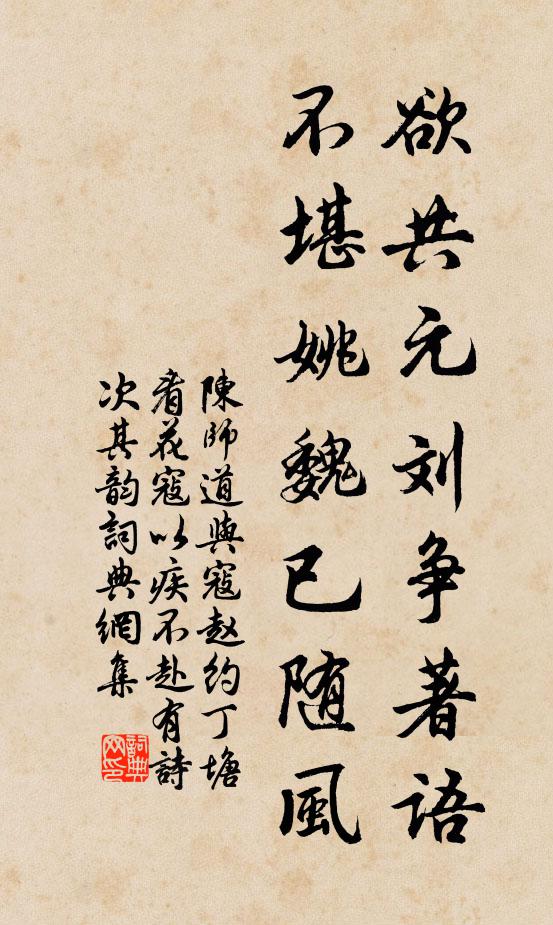 欲共元刘争著语
不堪姚魏已随風
陳師道與寇赵約丁塘
看花寇以疾不赴有詩
次其韵詞典網集
詞典網印